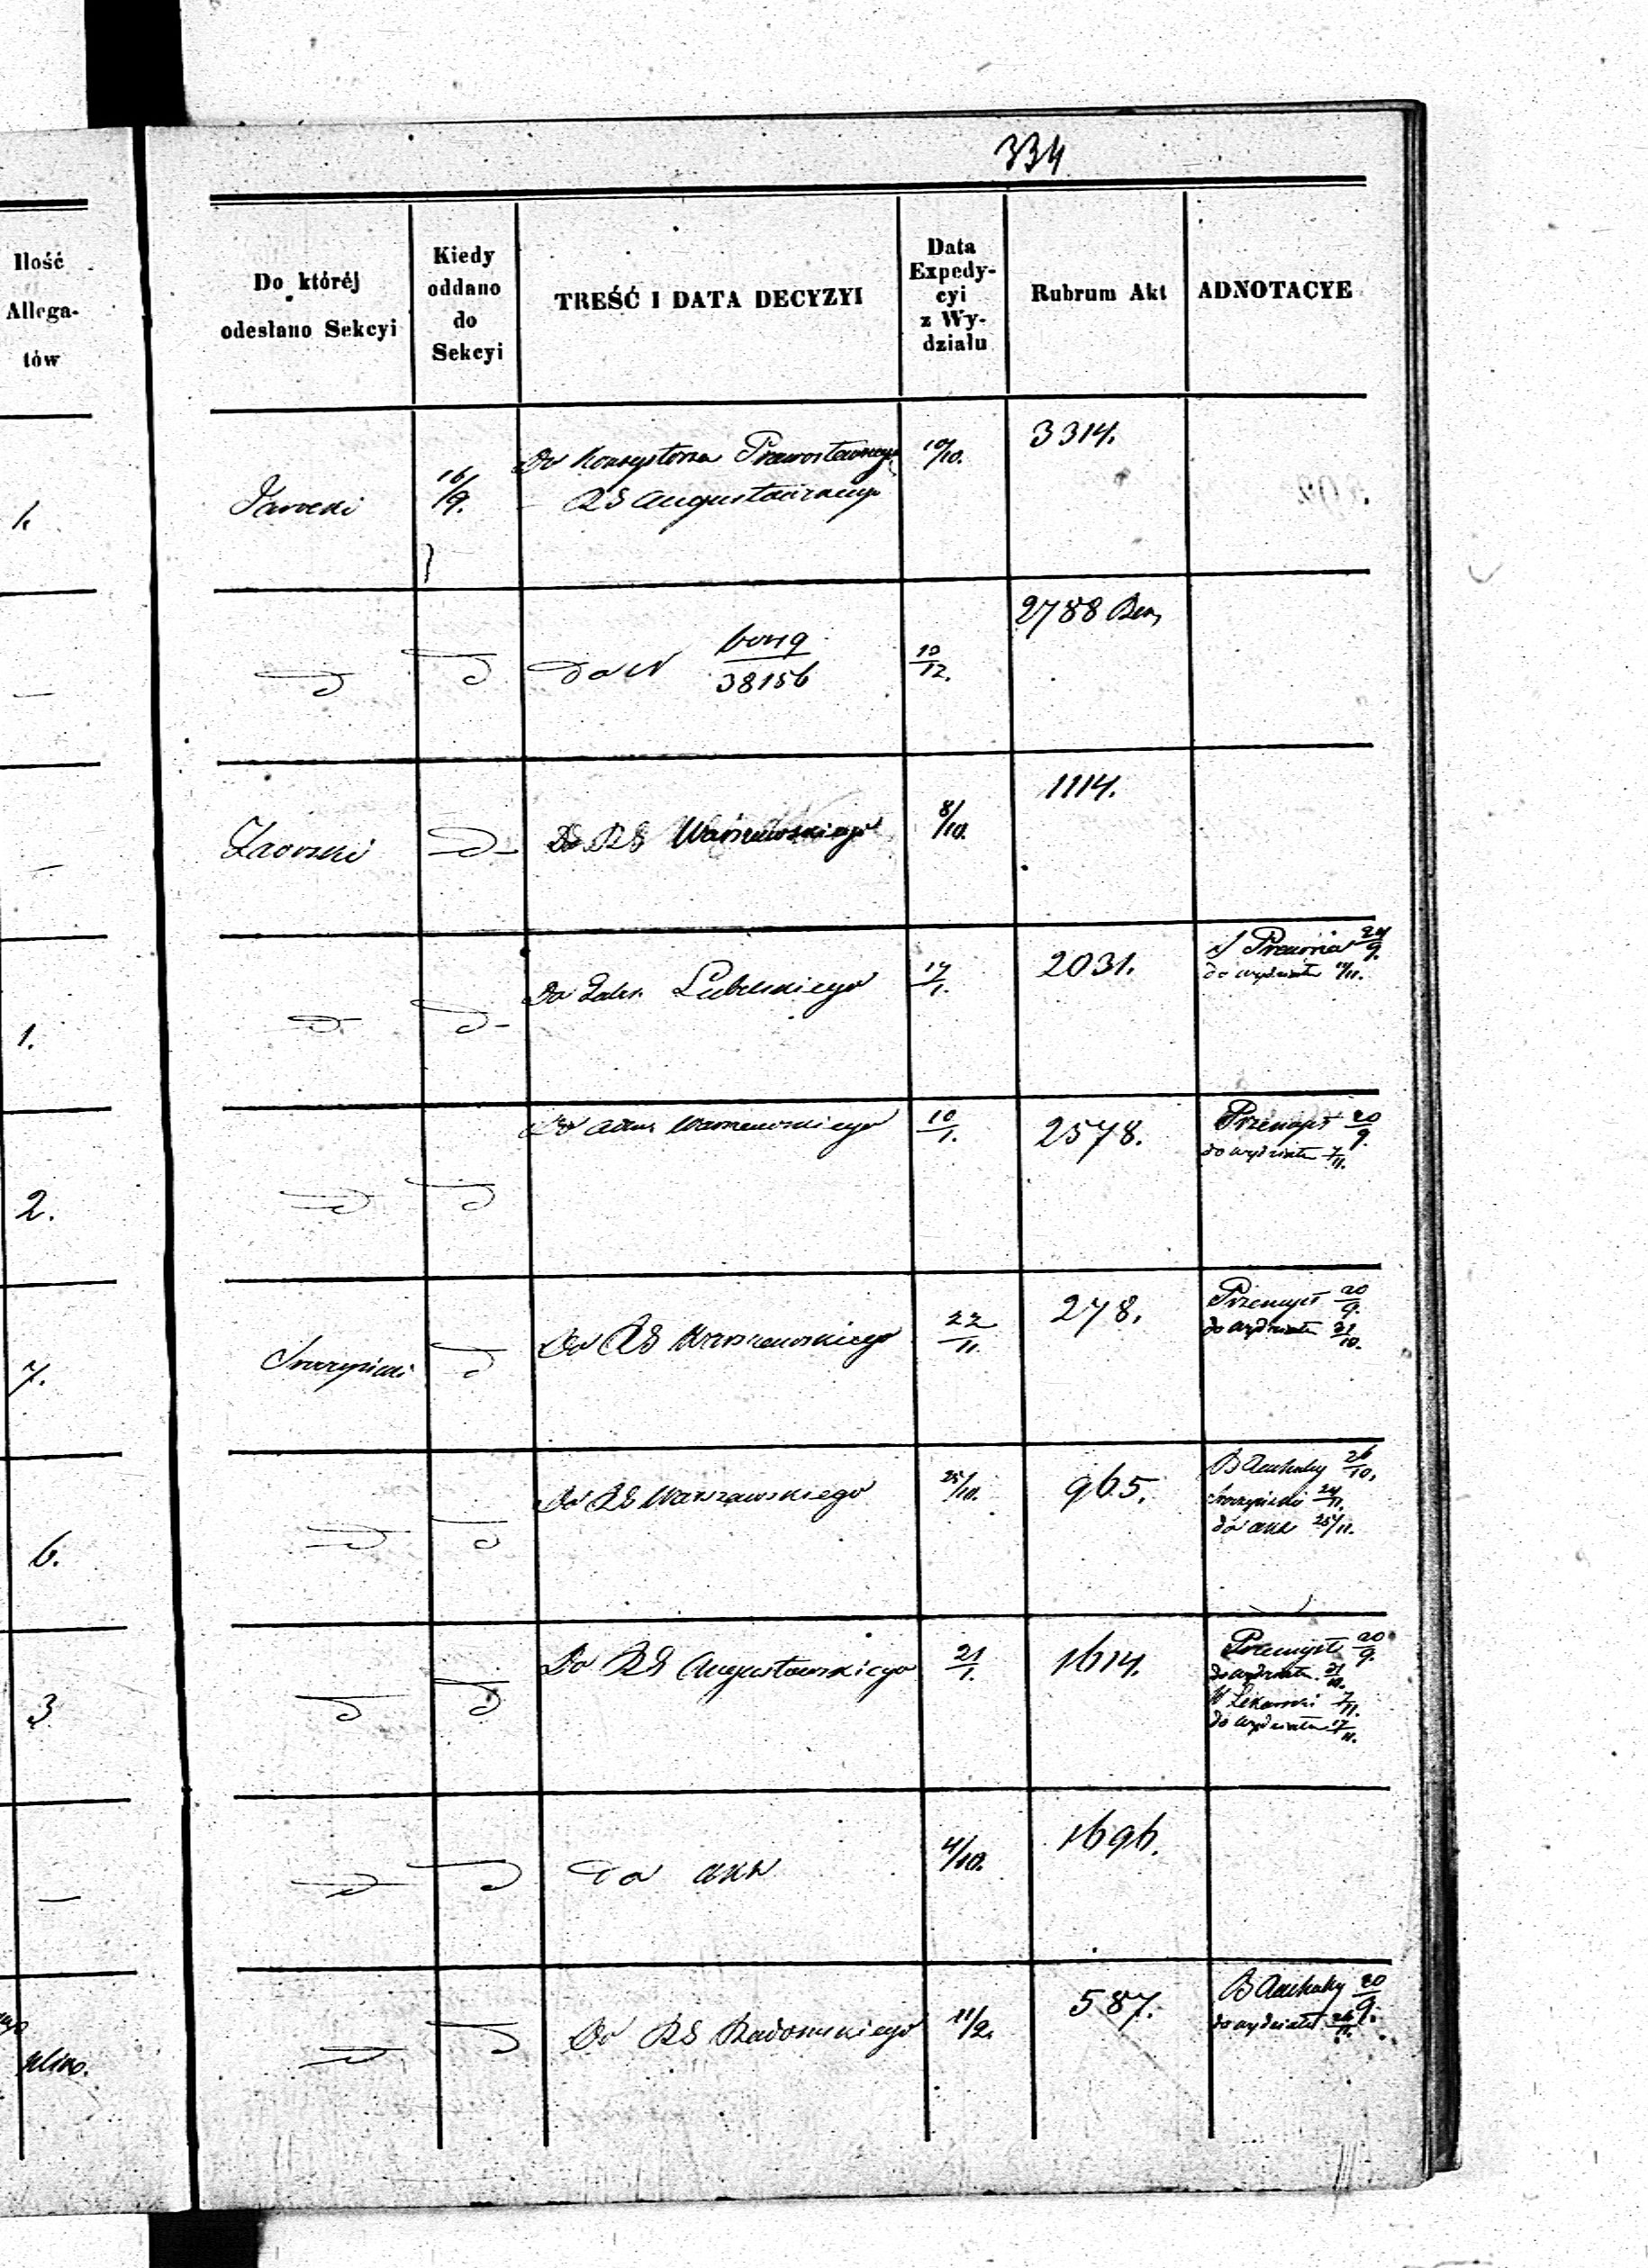 334
Ilość
Allega-
tów
Do któréj
odesłano Sekcyi
Kiedy
oddano
do
Sekcyi
TREŚĆ I DATA DECYZYI
Data
Expedy-
cyi
z Wy-
działu
Rubrum Akt
ADNOTACYE
1.
Jarocki
16/9.
Do Konsystorza Prawosławnego
RG Augustowskiego
10/10.
3314.
—
Do N
38156
10/12.
2788
—
Zaorski
Do RG Warszawskiego
8/10.
1114.
1.
Do Lubelskiego
17/1.
2031.
24/9.
do wydziału 14/11.
2.
Do Warszawskiego
10/1.
2578.
Przemysł 20/9.
do wydziału 7/11.
7.
Do RG Warszawskiego
22/11.
278.
Przemysł 20/9.
do wydziału 31/10.
6.
Do RG Warszawskiego
25/10.
965.
26/10.
24/11.
do akt 25/11.
3
Do RG Augustowskiego
21/1.
1614.
Przemysł 20/9.
do wydziału 31/10.
W Lekarski 7/11.
do wydziału 17/11.
—
Do akt
4/10.
1696.
Do RG Radomskiego
11/2.
587.
20/9.
do wydziału 26/11.